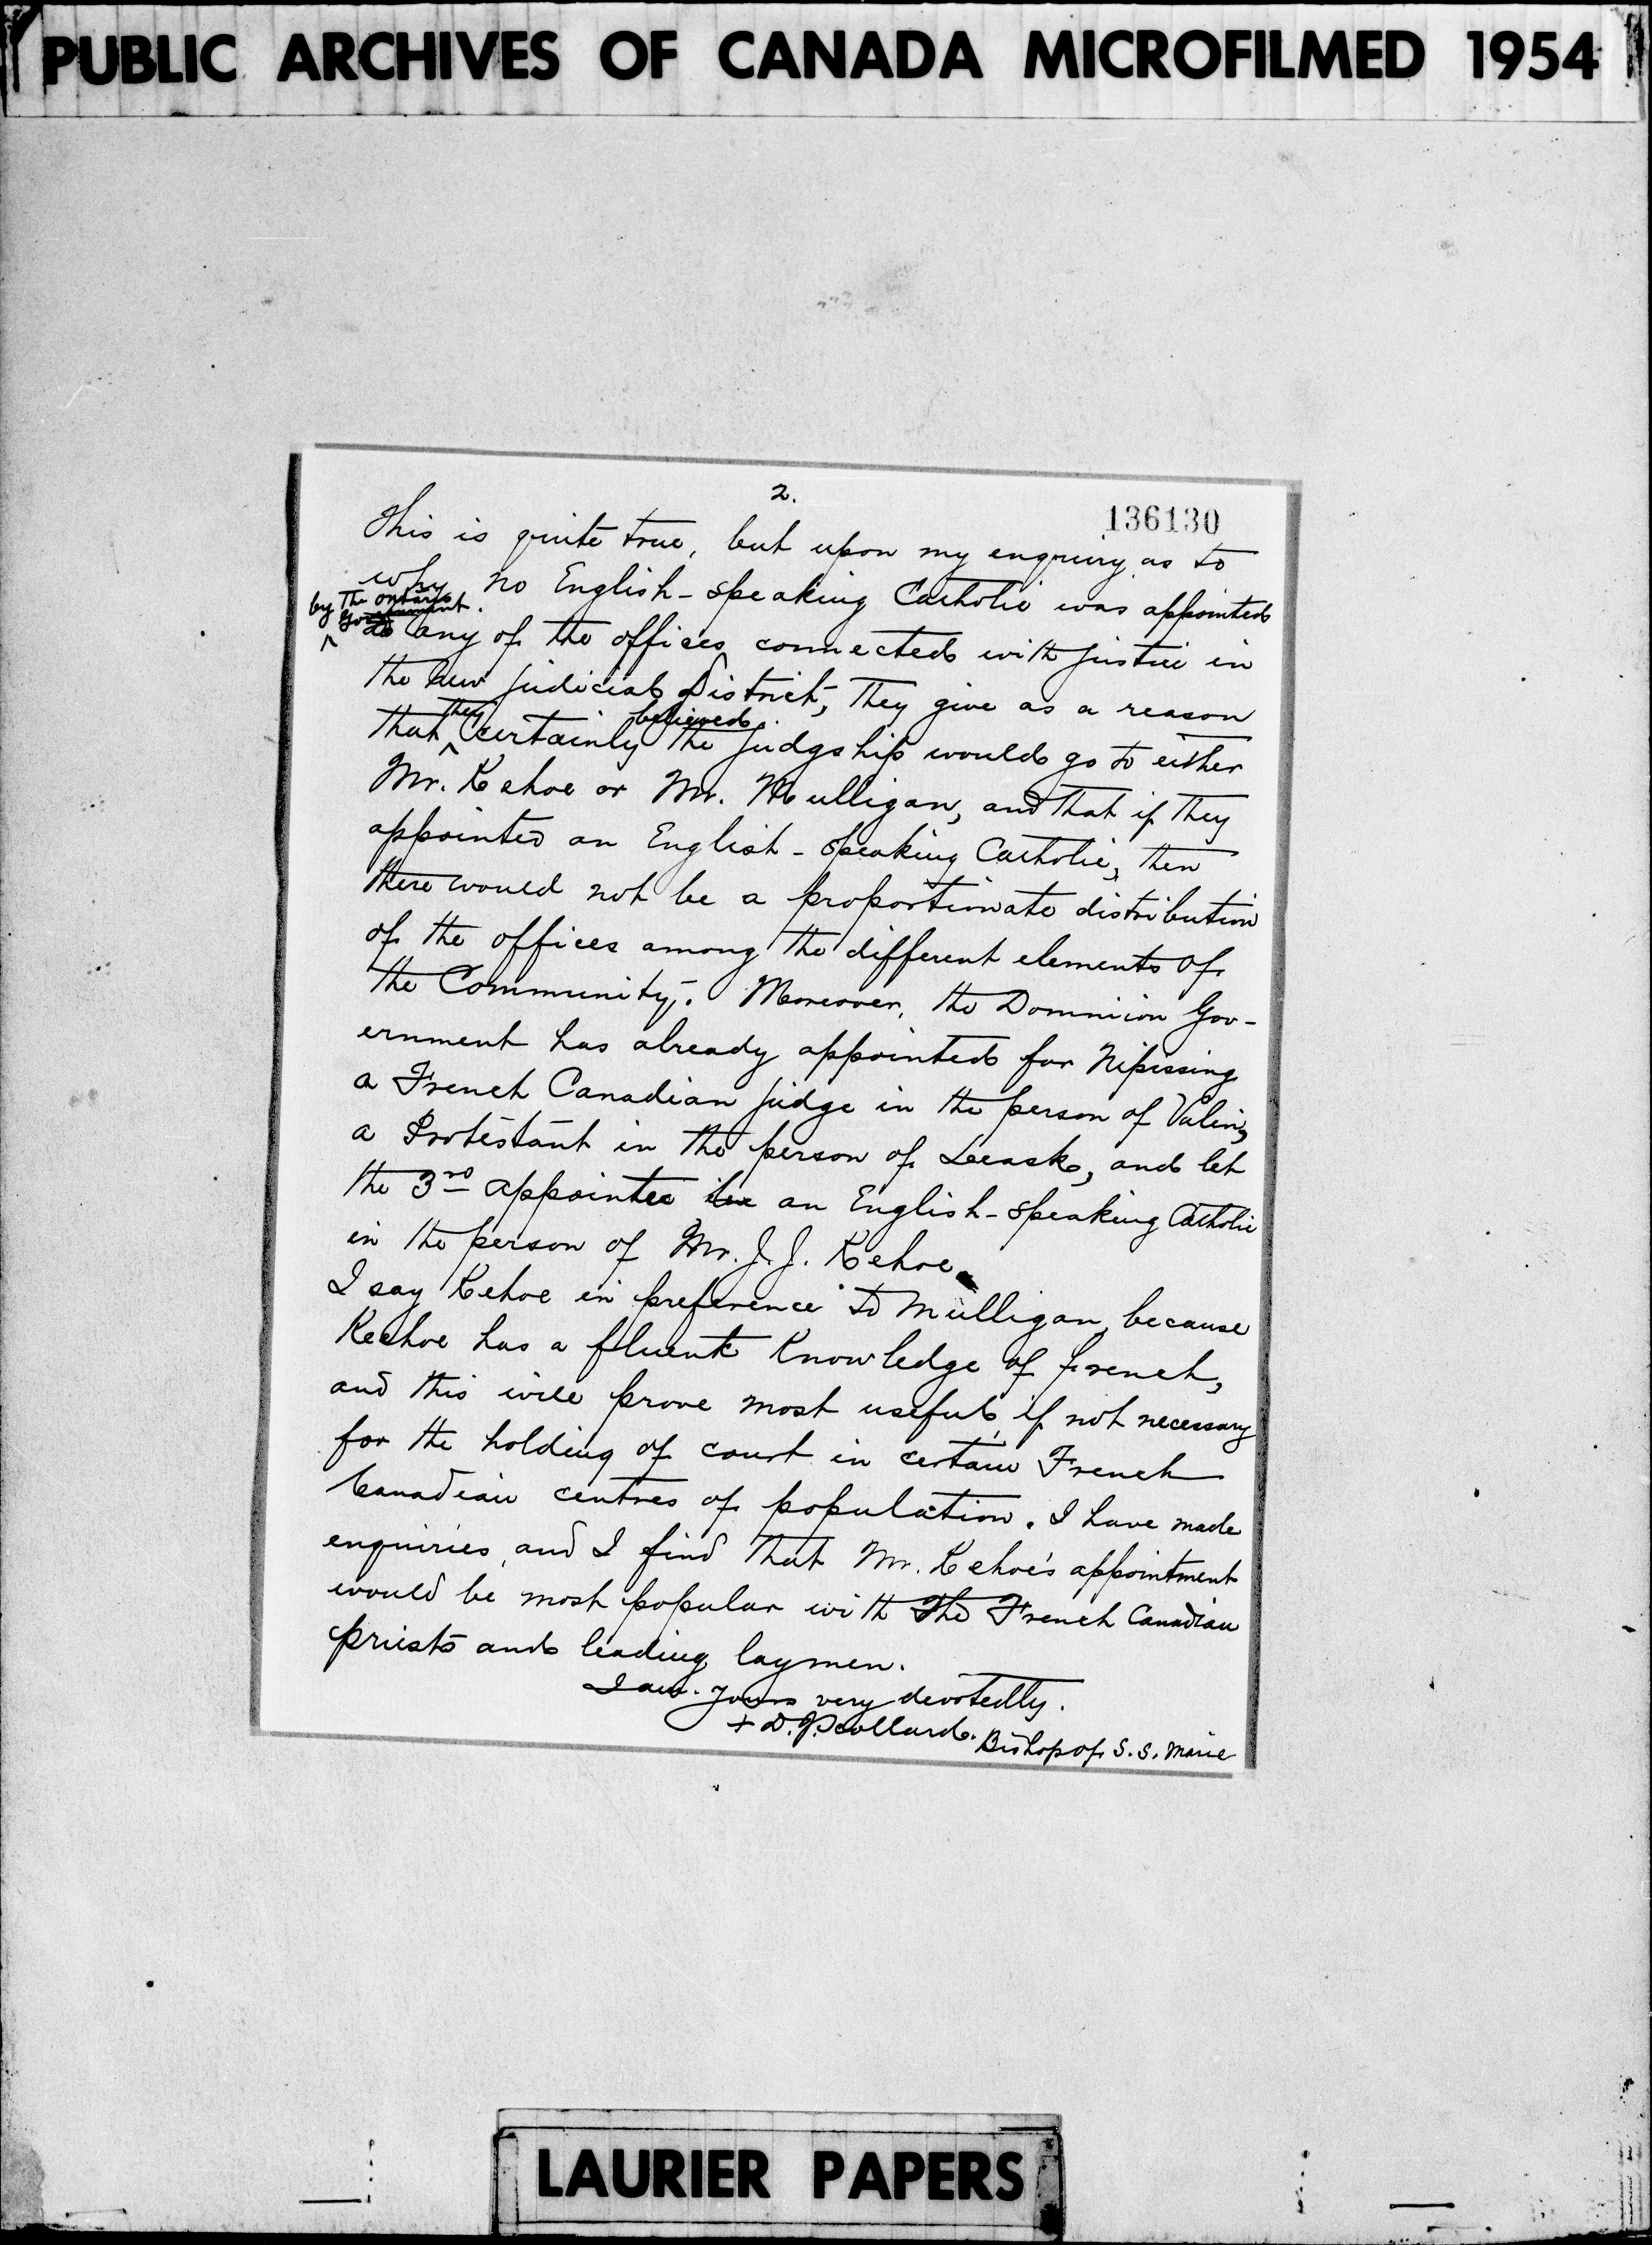 PUBLIC ARCHIVES OF CANADA MICROFILMED 1954
2.
136130
This is quite true, but upon my enquiry as to
why no English-speaking Catholic was appointed
by the Ontario
Government.
to any of the offices connected with justice in
the new judicial District, They give as a reason
that they certainly believed the judgship would go to either
Mr. Kehoe or Mr. Mulligan, and that if they
appointed an English-speaking Catholic, then
there would not be a proportionate distribution
of the offices among the different elements of
the Community. Moreover, the Dominion Gov-
ernment has already appointed for Nipissing
a French Canadian judge in the person of Valin,
a Protestant in the person of Leask, and let
the 3rd appointee be an English-speaking Catholic
in the person of Mr. J. J. Kehoe.
I say Kehoe in preference to Mulligan, because
Keehoe has a fluent Knowledge of french,
and this will prove most useful, if not necessary
for the holding of court in certain French
Canadian centres of population. I have made
enquiries, and I find that Mr. Kehoe's appointment
would be most popular with the French Canadian
priests and leading laymen.
I am. yours very devotedly.
+ D. J. Scollard. Bishop of S. S. Marie
LAURIER PAPERS